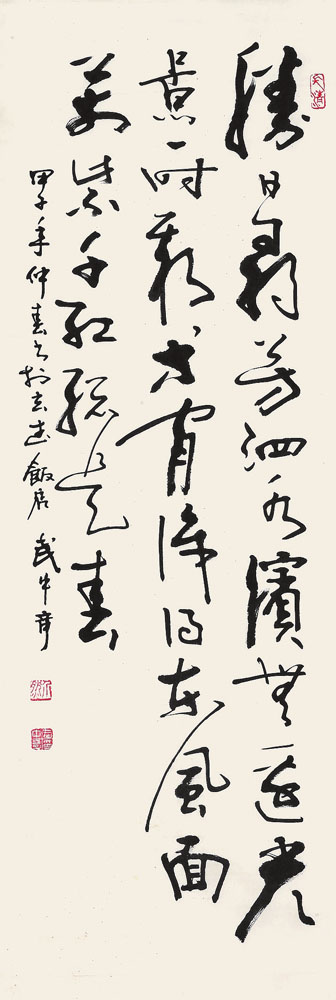 勝日尋芳泗水濱無邊光
景一時新等閒識得東風面
萬紫千紅總是春
甲子年仲春書於飯店 武中奇